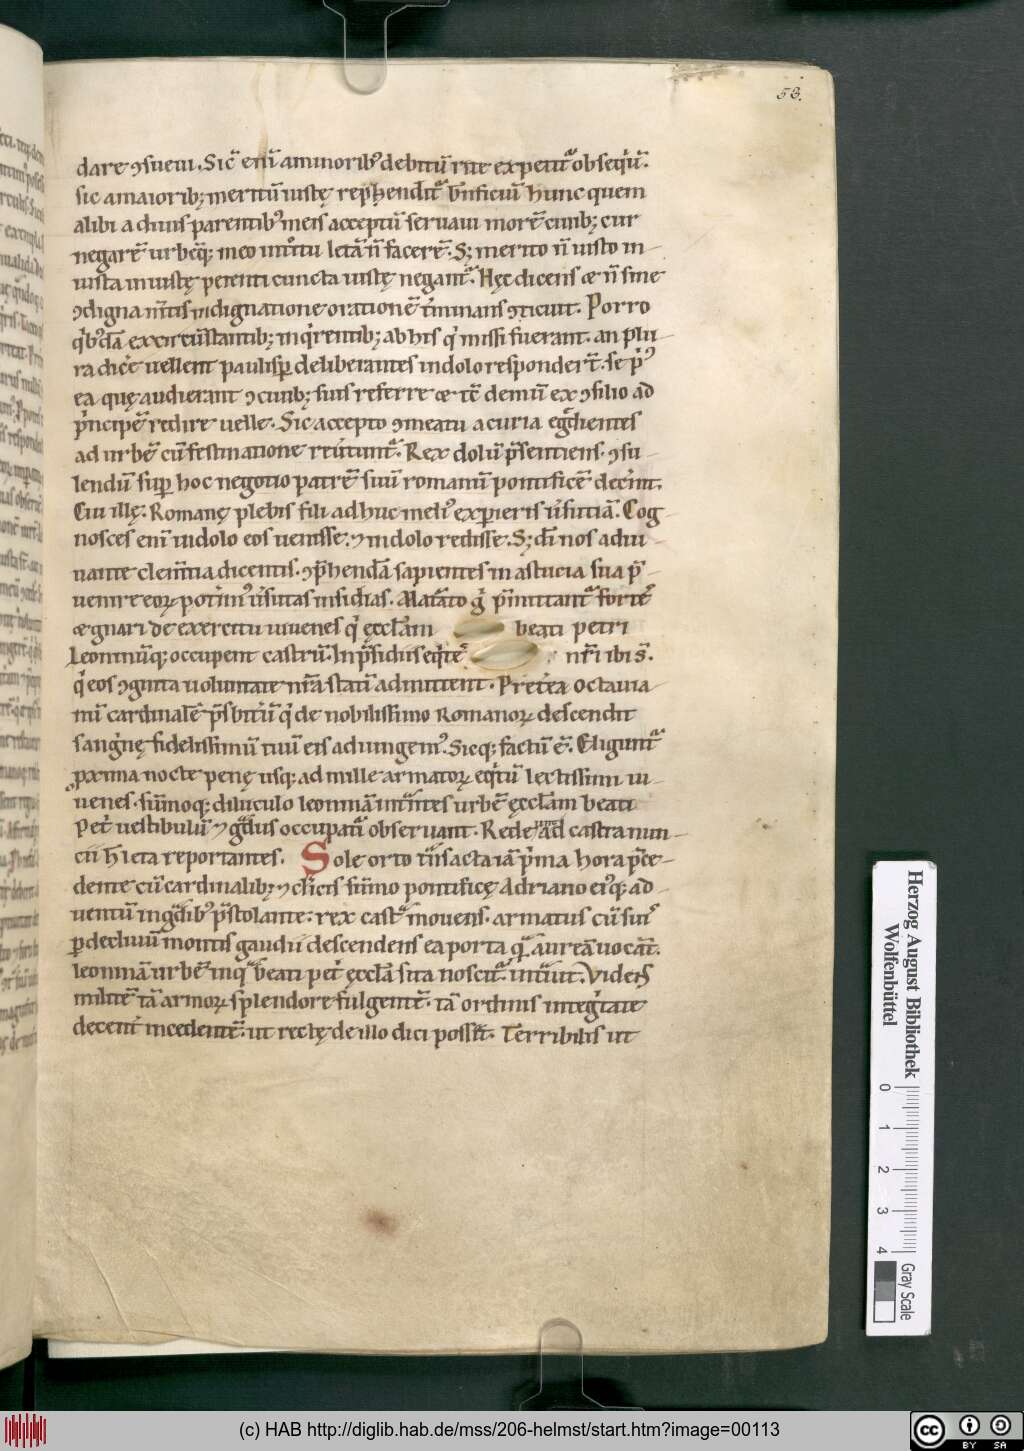 53.
dare ꝯsueui. Sic̄ eni᷑ aminoribꝰ debitū rite expetit᷑ obseq͛ū.
sic amaiorib; meritū iustę rep̄hendit᷑ b̄nficiū hunc quem
alibi adiuis parentibꝰ meis acceptū seruaui morē ciuib; cur
negarē urbeq; meo introitu letā n̄ facerē. S; merito n̄ iusto in-
iusta iniustę petenti cuncta iustę negant᷑. Hęc dicens & n̄ sine
ꝯdigna mentis indignatione orationē t͛minans ꝯticuit. Porro
q͛bꝰdā ex circūstantib; inq͛rentib; abhis q͛ missi fuerant. an plu-
ra dic̄e uellent paulisꝑ deliberantes indolo responder̄t. se p͛ꝰ
ea quę audierant ꝯciuib; suis referre & tc̄ demū ex ꝯsilio ad
p͛ncipē redire uelle. Sic accepto ꝯmeatu acuria eg̃dientes
ad urbē cū festinatione reu͛tunt᷑. Rex dolū p̄sentiens. ꝯsu-
lendū suꝑ hoc negotio patrē suū romanū pontificē decreuit.
Cui ille. Romanę plebis fili adhuc meliꝰ exꝑieris u͛sutiā. Cog-
nosces eni᷑ indolo eos uenisse. ⁊ indolo redisse. S; dī nos adiu-
uante clem̄tia dicentis. ꝯp̄hendā sapientes in astucia sua p̄-
uenire eoꝝ potim̄ꝰ u͛sutas insidias. Maturato g͛ p̄mittant᷑ fortes
& gnari de exercitu iuuenes q͛ ęcclā̄m beati petri
Leoninūq; occupent castrū. In p̄sidiis eq͛tes n̄ri ibi s̄.
q͛ eos ꝯgnita uoluntate nr̄a statī admittent. Pret͛ea octauia-
nū cardinalē p̄sbit͛ū q͛ de nobilissimo Romanoꝝ descendit
sang͛nę fidelissimū tuū eis adiungemꝰ. Sicq; factū ē. Eligunt᷑
ꝓxima nocte penę usq; ad mille armatoꝝ eq͛tū lectissimi iu-
uenes. sūmoq; diluculo leoninā intrantes urbē ęcclam beati
Pet͛ uestibulū ⁊ g̃dus occupatū obseruant. Redeunt ad castra nun-
cii h̄ leta reportantes. Sole orto t̃nsacta iā p͛ma hora p̄ce-
dente cū cardinalib; ⁊ cl͛icis sūmo pontificę Adriano ei͛ꝰq; ad-
uentū ing̃dibꝰ p̄stolante: rex cast᷑ mouens. armatus cū suis
ꝑdecliuū montis gaudii descendens ea porta q̃ aureā uocat̄.
leoninā urbē inq̃ beati pet͛ ęcclā sita noscit᷑. intrauit. Videres
militē tā armoꝝ splendore fulgentē. tā ordinis integ͛tate
decent͛ incedentē. ut rectę de illo dici posset. Terribilis ut
Herzog August Bibliothek
Wolfenbüttel
0 1 2 3 4
Gray Scale
(c) HAB http://diglib.hab.de/mss/206-helmst/start.htm?image=00113
cc BY SA